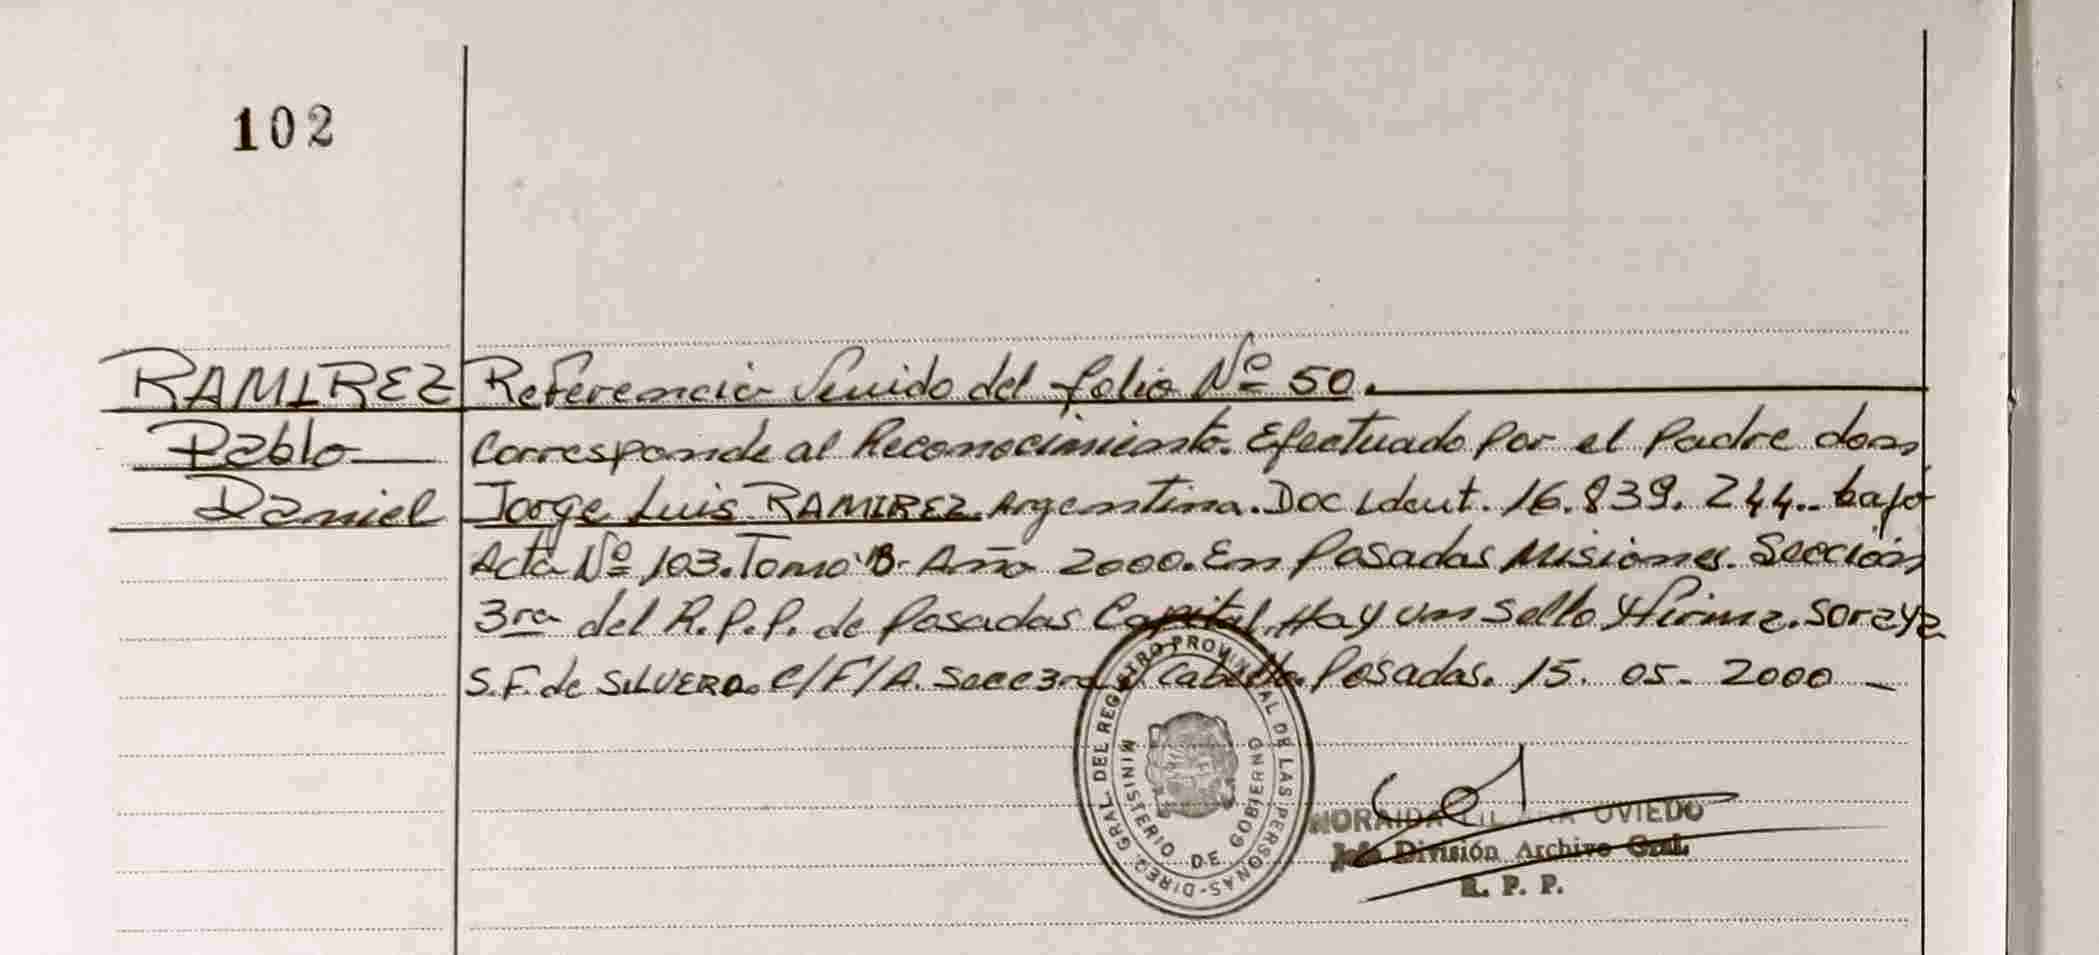 102
RAMIREZ
Pablo
Daniel
Referencia Venido del folio Nº 50.
Corresponde al Reconocimiento. Efectuado Por el Padre don
Jorge Luis RAMIREZ. Argentina. Doc Ident. 16.839.244.. bajo
Acta Nº 103. Tomo Año 2000. En Posadas Misiones. Sección
3ra del R.P.P. de Posadas Capital. Hay un Sello y Firma. Soraya
S.F. de SILVERO. C/F/A. Secc 3ra Posadas. 15. 05. 2000 -
DIREC. GRAL. DEL REGISTRO PROVINCIAL DE LAS PERSONAS-
MINISTERIO DE GOBIERNO
OVIEDO
Jefe División Archivo Gral.
R. P. P.